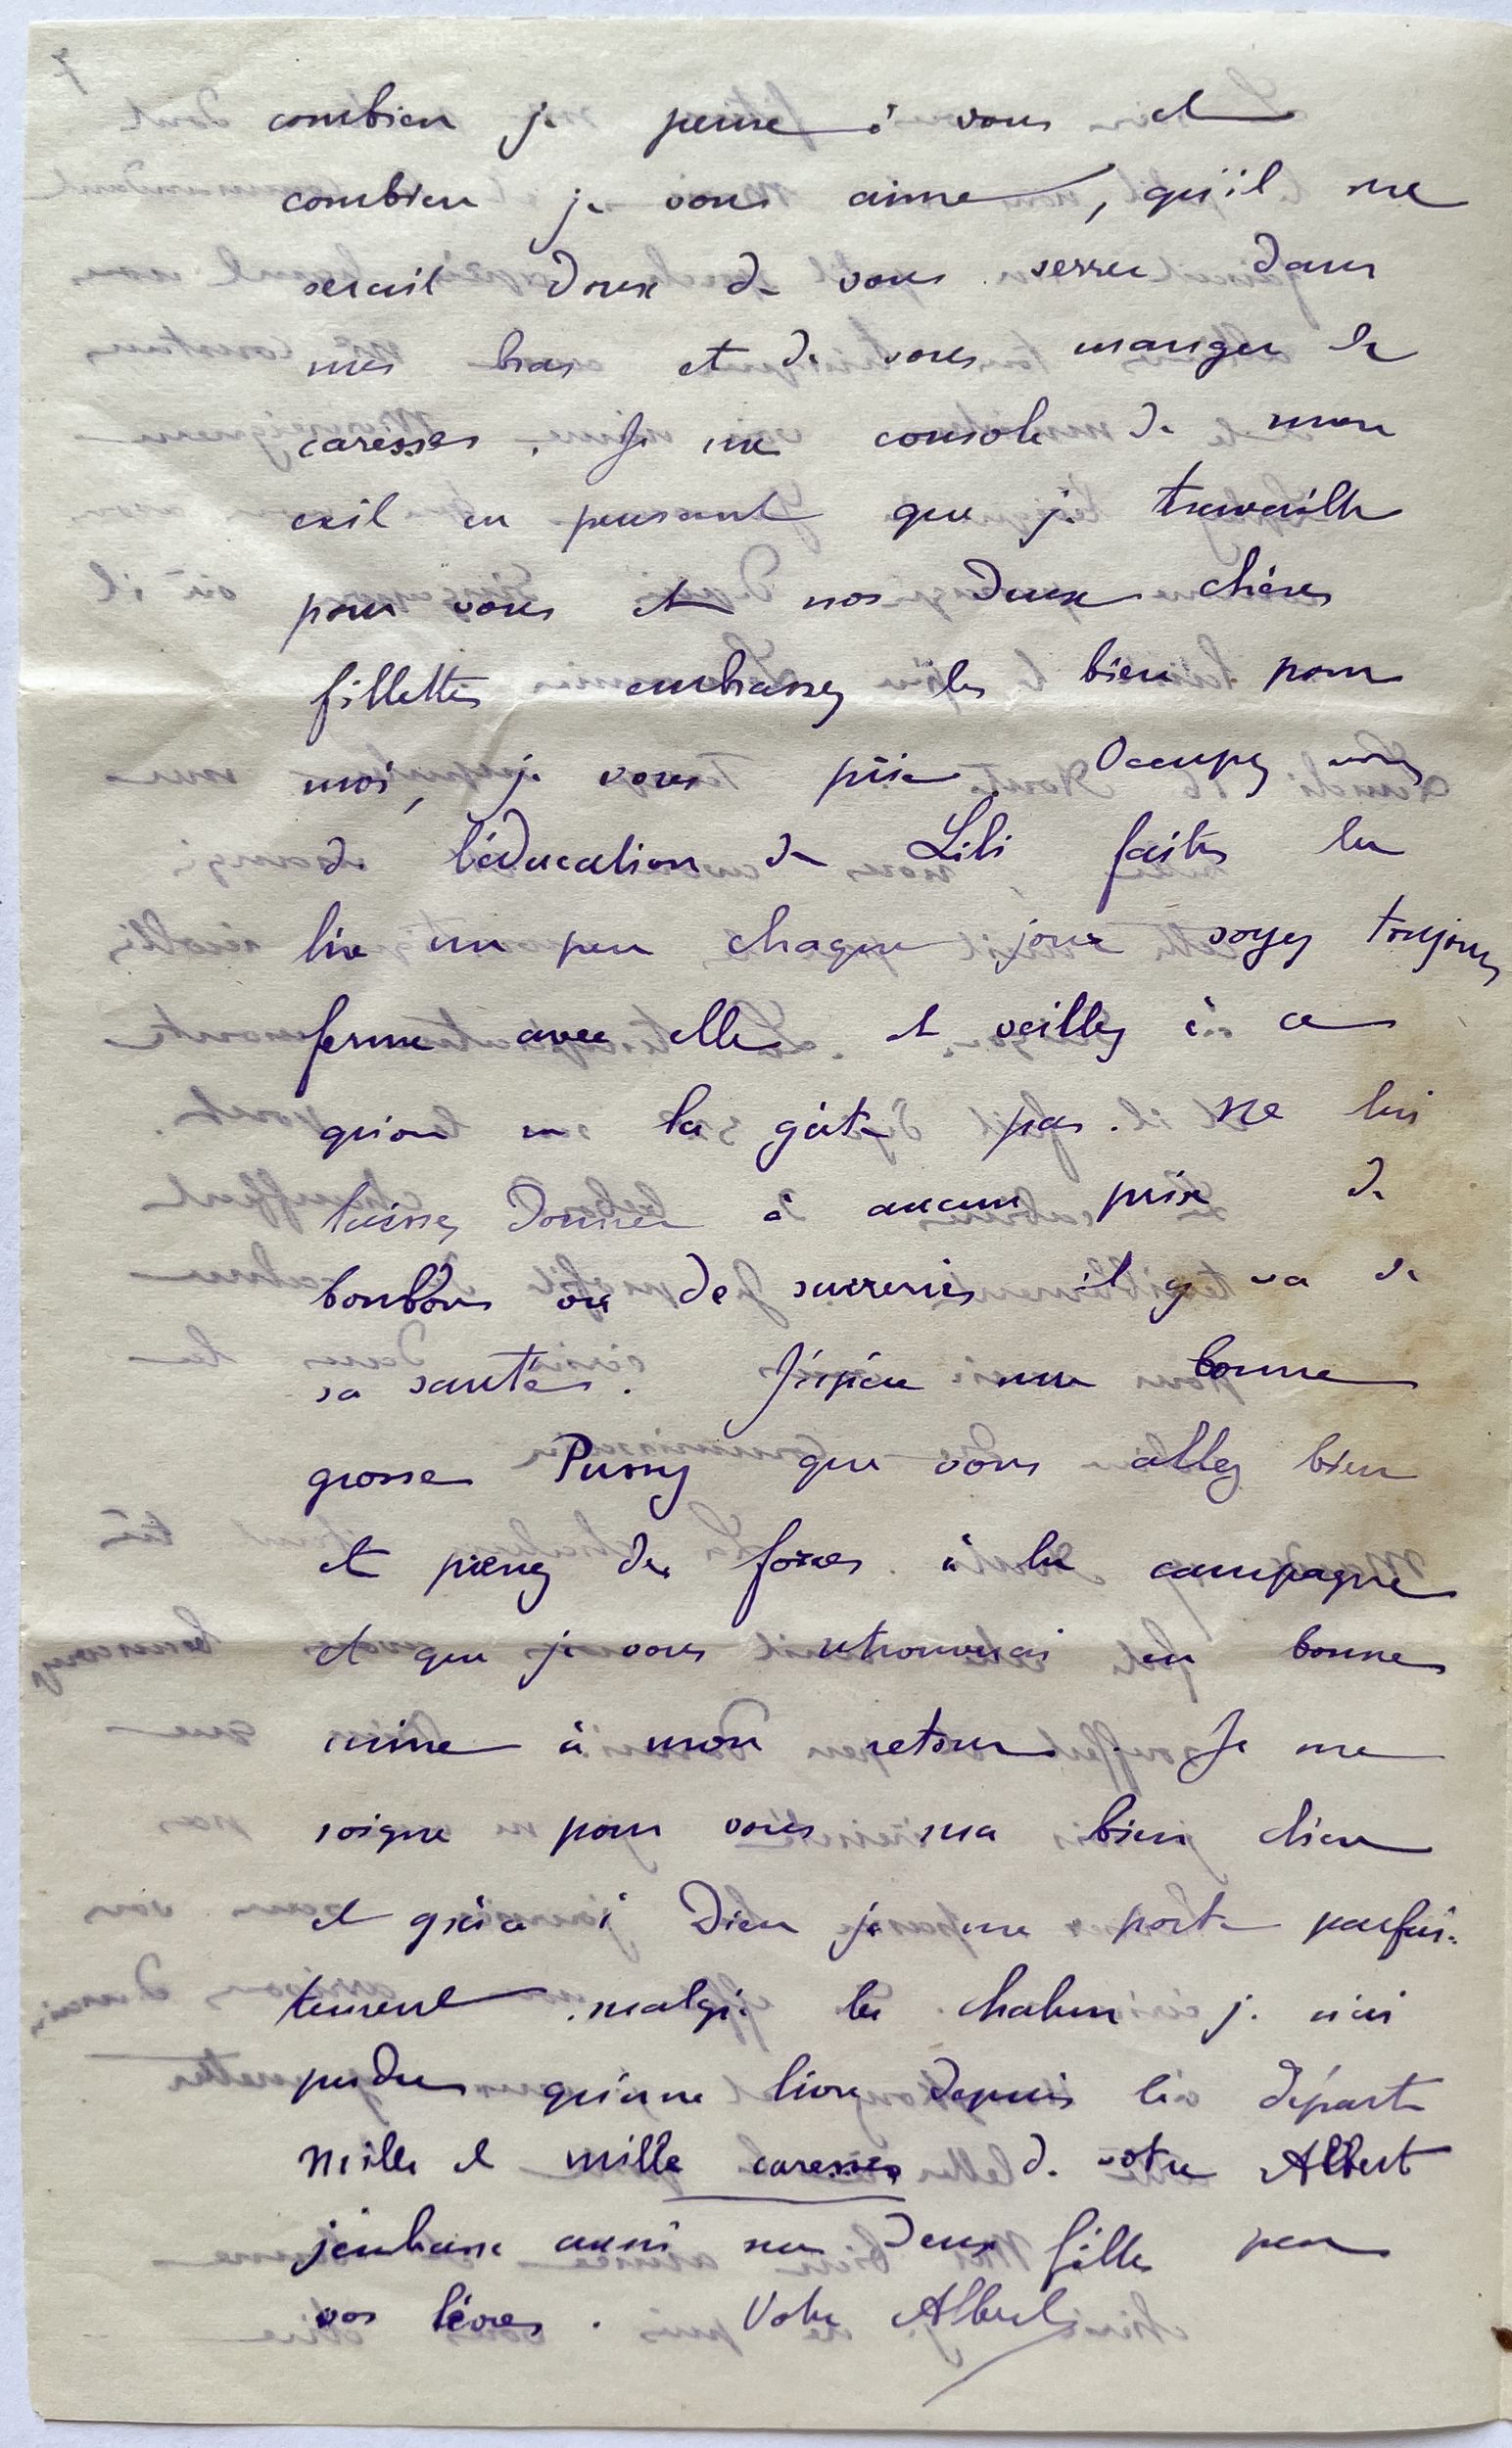 combien je pense à vous et
combien je vous aime, qu'il me
serait doux de vous serrer dans
mes bras et de vous manger de
caresses. Je me console de mon
exil en pensant que je travaille
pour vous et nos deux chères
fillettes embrassez les bien pour
moi, je vous prie. Occupez vous
de l'éducation de Lili faites la
lire un peu chaque jour soyez toujours
ferme avec elle et veillez à ce
qu'on ne la gâte pas. Ne lui
laissez donner à aucun prix de
bonbons ou de sucreries il y va de
sa santé. J'espère ma bonne
grosse Pussy que vous allez bien
et prenez des forces à la campagne
et que je vous retrouverai en bonne
mine à mon retour. Je me
soigne pour vous ma bien chère
et grâce à Dieu je me porte parfai-
tement malgré la chaleur je n'ai
perdu qu'une livre depuis le départ
Mille et mille caresses de votre Albert
j'embrasse aussi mes deux filles par
vos lèvres. Votre Albert